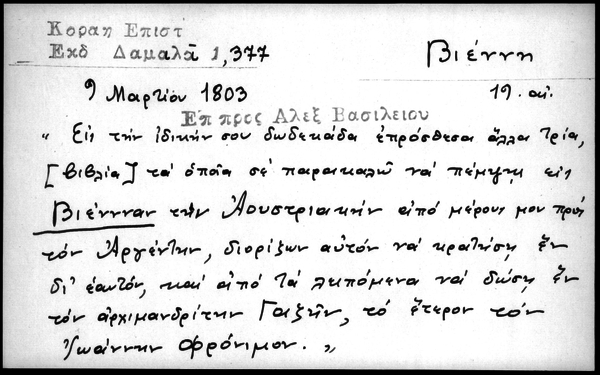 Κοραη Επιστ
Εκδ Δαμαλᾶ 1,377
Βιέννη
9 Μαρτίου 1803
19. αἰ.
Επ προς Αλεξ Βασιλειου
" Εἰς τὴν ἰδικήν σου δωδεκάδα ἐπρόσθεσα ἄλλα τρία,
[βιβλία] τὰ ὁποῖα σὲ παρακαλῶ νὰ πέμψῃς εἰς
Βιένναν τὴν Αουστριακὴν ἀπὸ μέρους μου πρὸς
τὸν Ἀργέντην, διορίζων αὐτὸν νὰ κρατήσῃ ἓν
δι' ἑαυτόν, καὶ ἀπὸ τὰ λειπόμενα νὰ δώσῃ ἓν
τὸν ἀρχιμανδρίτην Γαζῆν, τὸ ἕτερον τὸν
Ἰωάννην Φρόνιμον. "